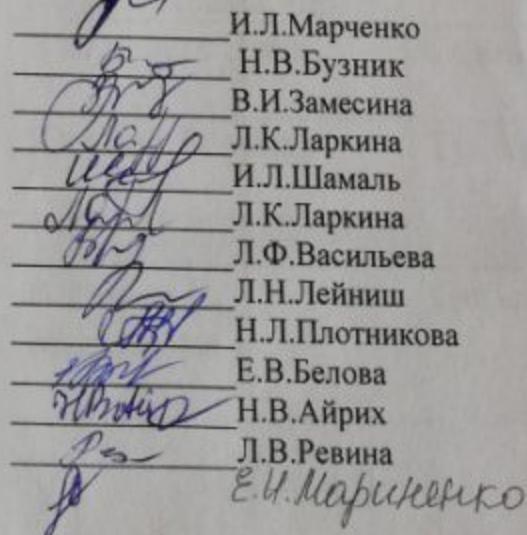 И.Л.Марченко
Н.В.Бузник
В.И.Замесина
Л.К.Ларкина
И.Л.Шамаль
Л.К.Ларкина
Л.Ф.Васильева
Л.Н.Лейниш
Н.Л.Плотникова
Е.В.Белова
Н.В.Айрих
Л.В.Ревина
Е.И.Мариненко